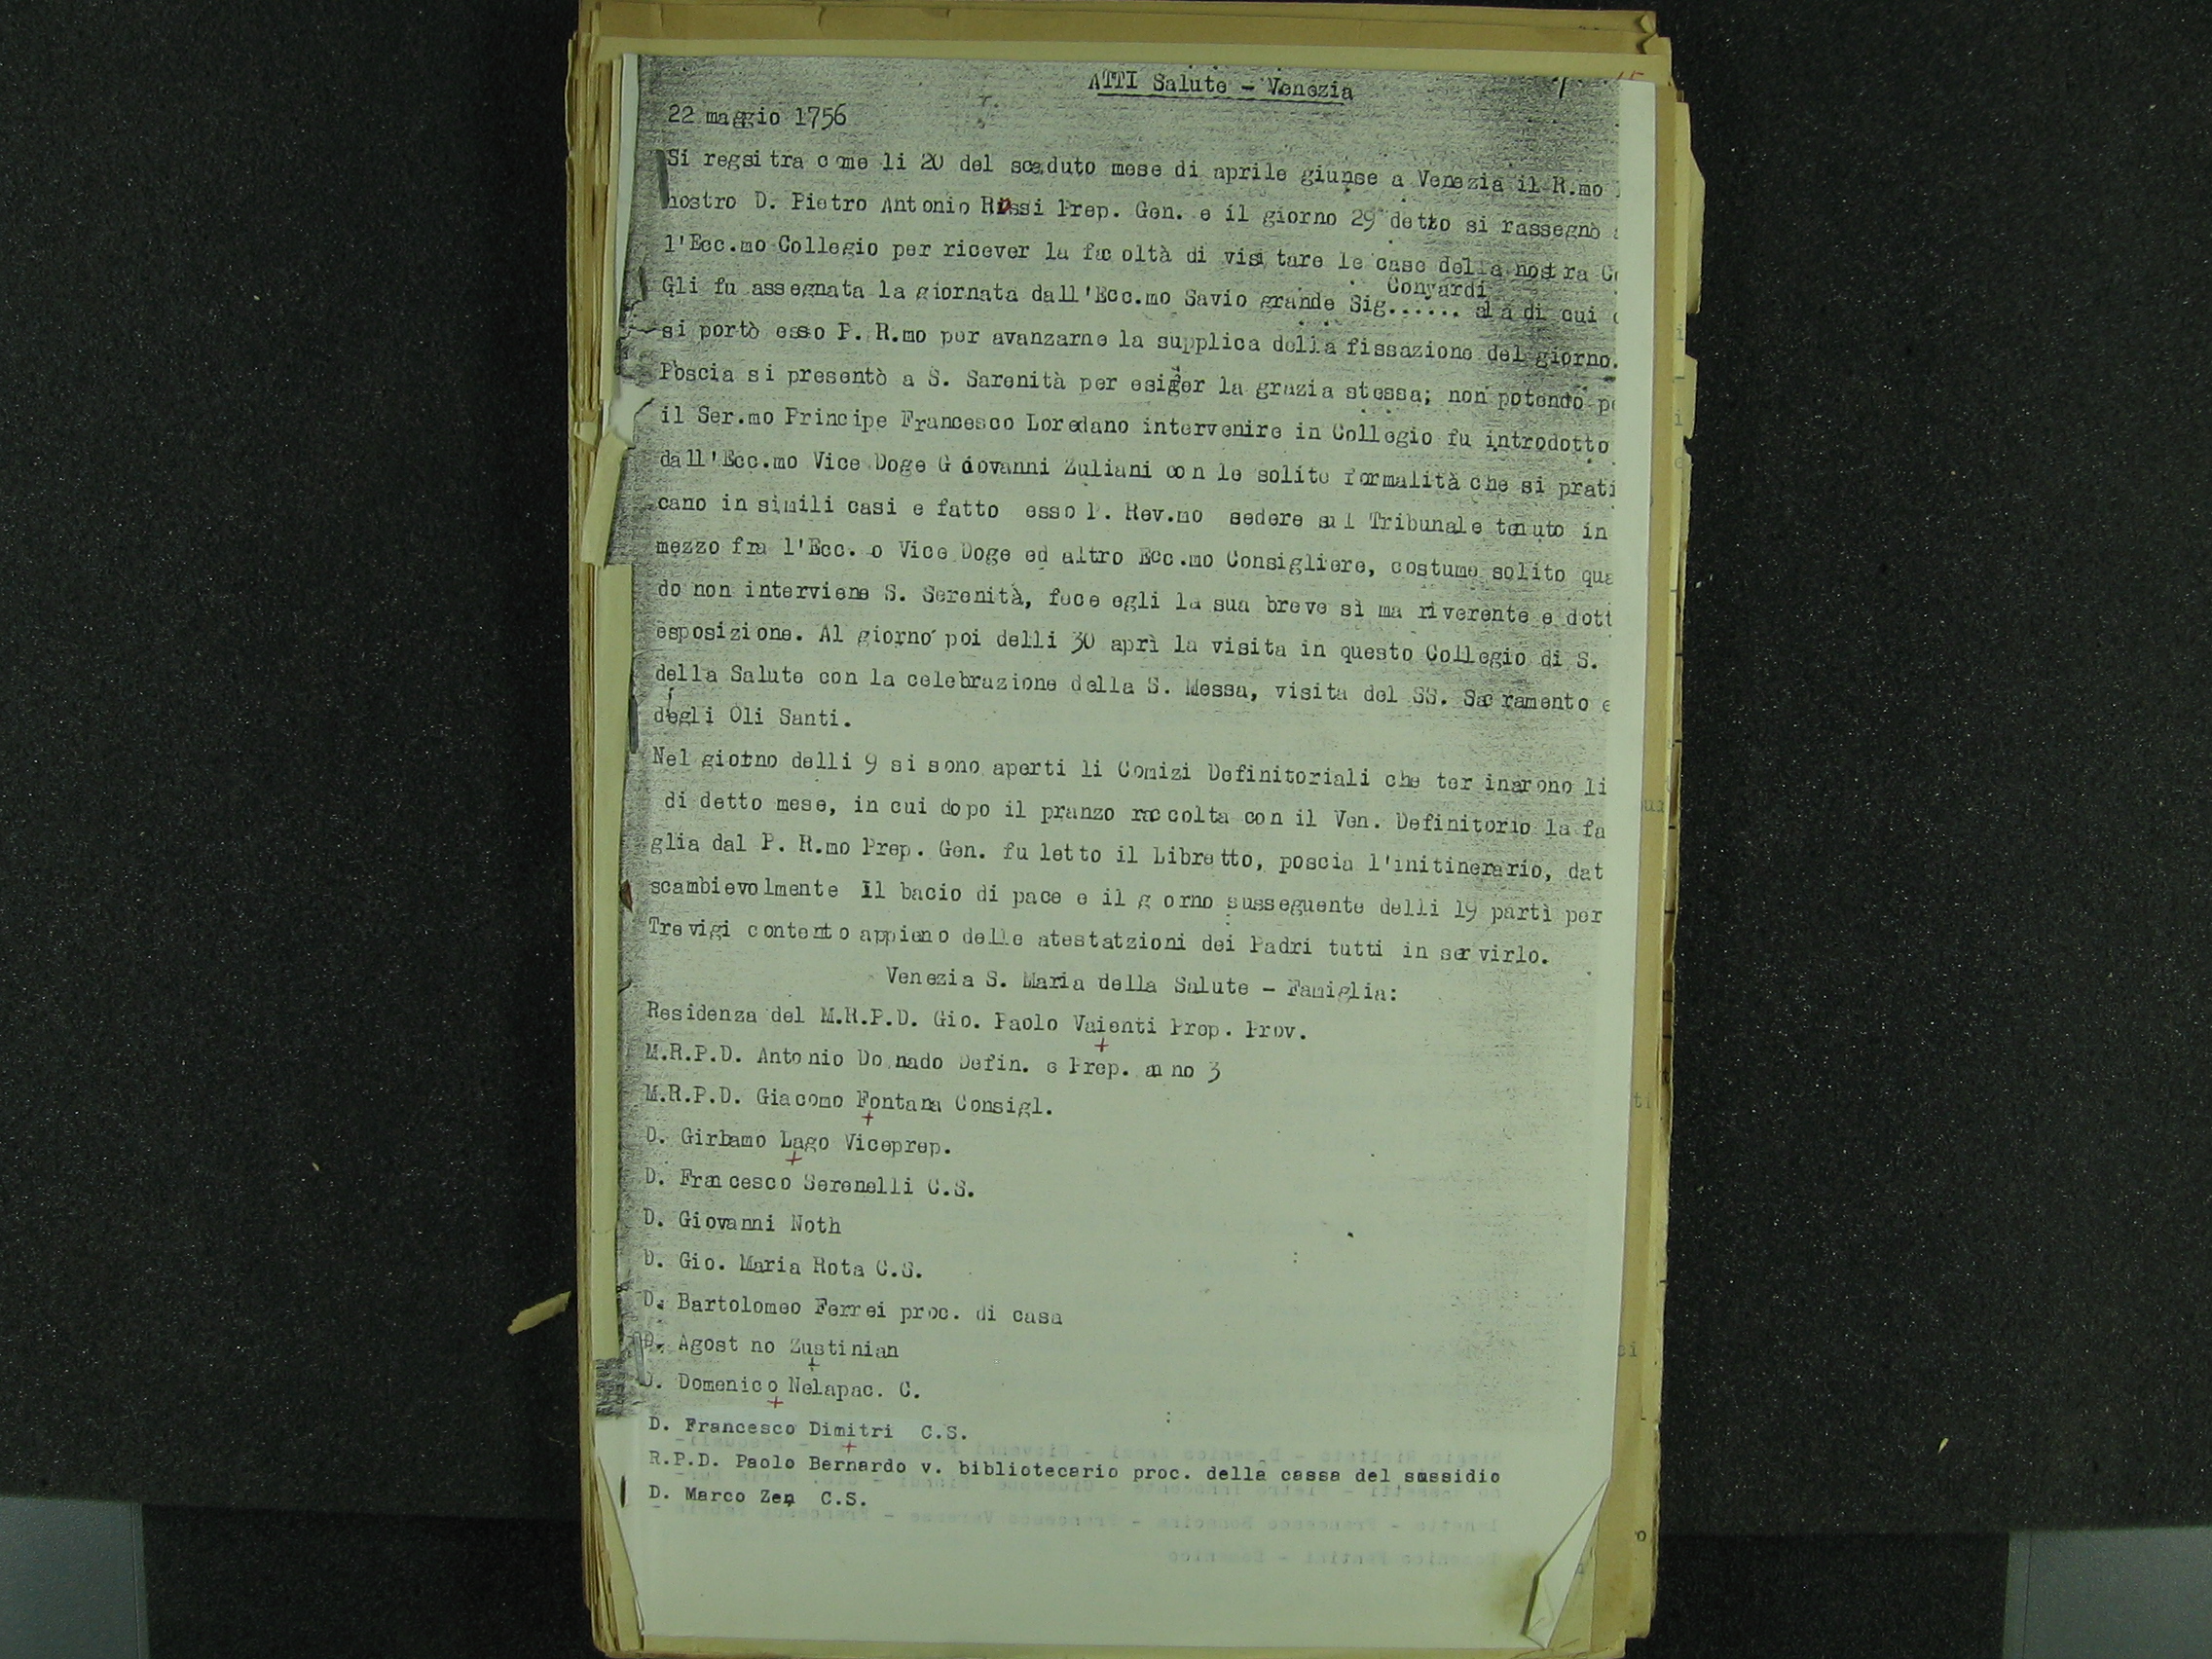 ATTI Salute - Venezia
22 maggio 1756
Si regsitra come li 20 del scaduto mese di aprile giunse a Venezia il R.mo
nostro D. Pietro Antonio Rossi Prep. Gen. e il giorno 29 detto si rassegnò a
l'Ecc.mo Collegio per ricever la facoltà di visitare le case della nostra Co
Conyardi
Gli fu assegnata la giornata dall'Ecc.mo Savio grande Sig...... alla di cui
si portò esso P. R.mo per avanzarne la supplica della fissazione del giorno.
Poscia si presentò a S. Sarenità per esiger la grazia stessa; non potendo pe
il Ser.mo Principe Francesco Loredano intervenire in Collegio fu introdotto
dall'Ecc.mo Vice Doge Giovanni Zuliani con le solite formalità che si prati
cano in simili casi e fatto esso P. Rev.mo sedere sul Tribunale tenuto in
mezzo fra l'Ecc. o Vice Doge ed altro Ecc.mo Consigliere, costume solito qua
do non interviene S. Serenità, fece egli la sua breve sì ma riverente e dott
esposizione. Al giorno poi delli 30 aprì la visita in questo Collegio di S.
della Salute con la celebrazione della S. Messa, visita del SS. Sacramento e
degli Oli Santi.
Nel giorno delli 9 si sono aperti li Comizi Definitoriali che ter inarono li
di detto mese, in cui dopo il pranzo raccolta con il Ven. Definitorio la fa
glia dal P. R.mo Prep. Gen. fu letto il Libretto, poscia l'initinerario, dat
scambievolmente il bacio di pace e il g orno susseguente delli 19 partì per
Trevigi contento appieno delle atestatzioni dei Padri tutti in servirlo.
Venezia S. Maria della Salute - Famiglia:
Residenza del M.R.P.D. Gio. Paolo Vaienti Prep. Prov.
M.R.P.D. Antonio Donado Defin. e Prep. anno 3
M.R.P.D. Giacomo Fontana Consigl.
D. Girlamo Lago Viceprep.
D. Francesco Serenelli C.S.
D. Giovanni Noth
D. Gio. Maria Rota C.S.
D. Bartolomeo Ferrei proc. di casa
D. Agost no Zustinian
D. Domenico Nelapac. C.
D. Francesco Dimitri C.S.
R.P.D. Paolo Bernardo v. bibliotecario proc. della cassa del sussidio
D. Marco Zen C.S.